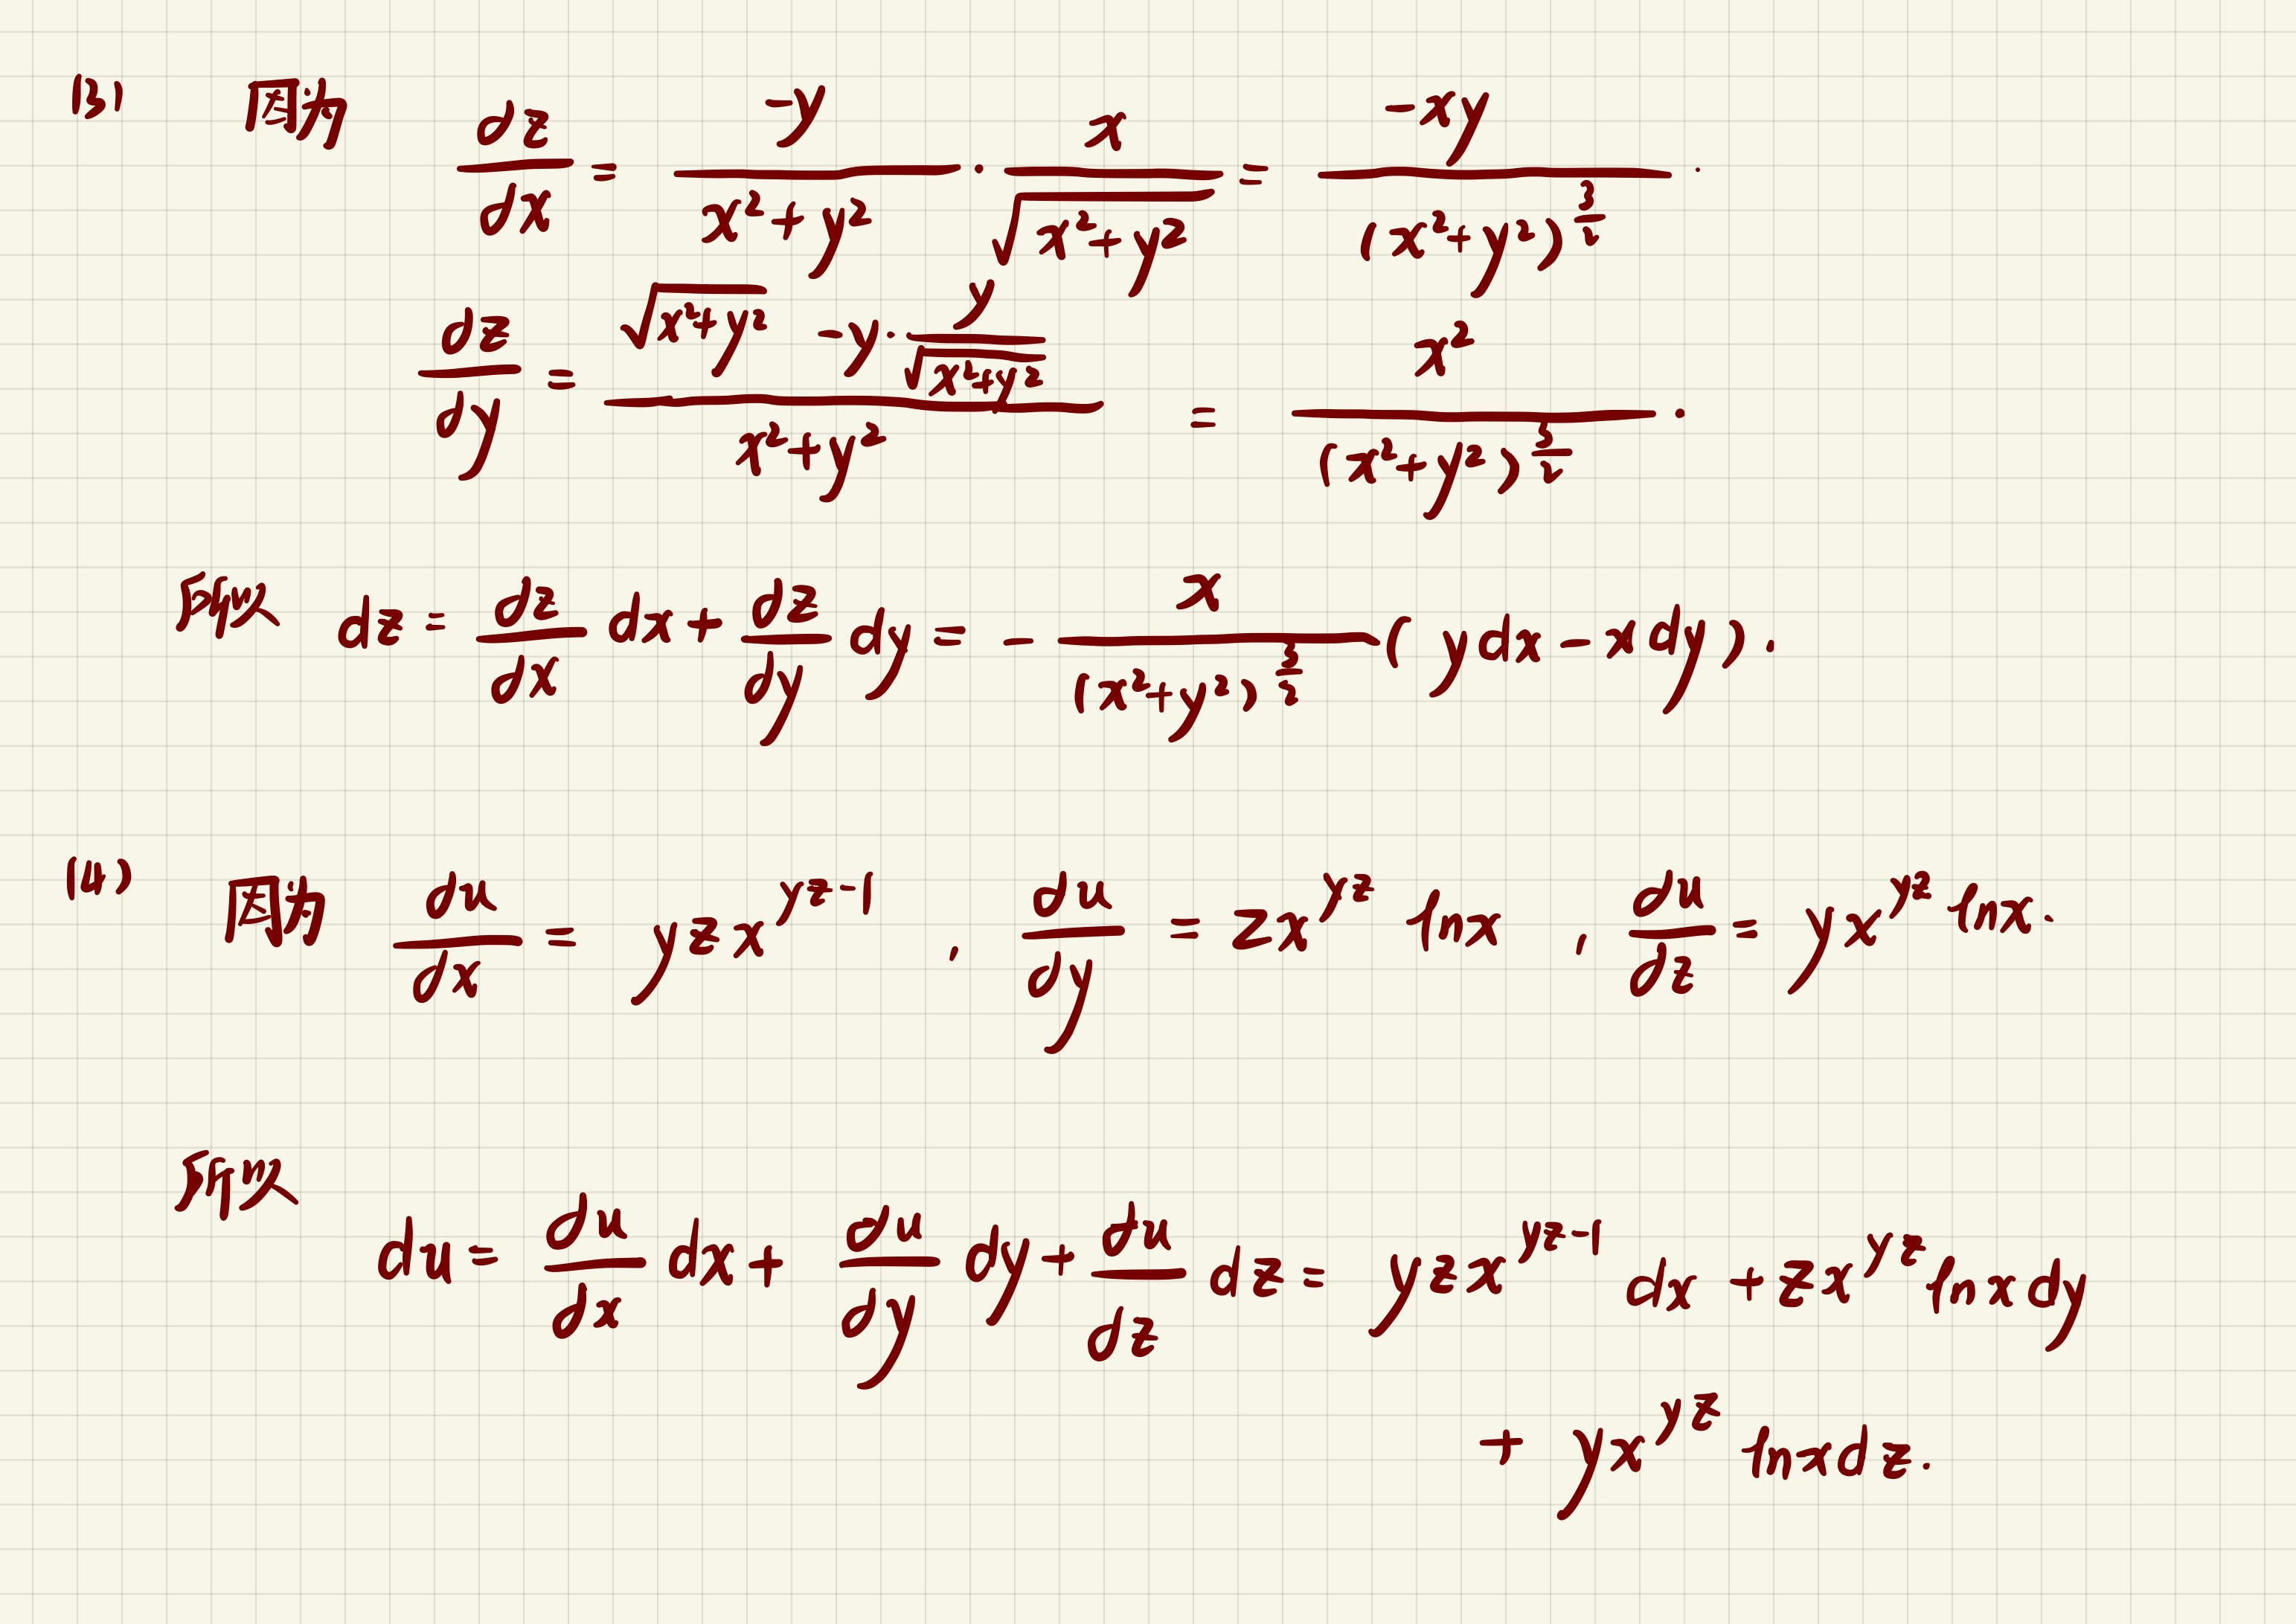 (3) 因为 ∂z/∂x = -y/(x²+y²) · x/√(x²+y²) = -xy/(x²+y²)^(3/2) .
∂z/∂y = (√(x²+y²) - y · y/√(x²+y²))/(x²+y²) = x²/(x²+y²)^(3/2) .
所以 dz = ∂z/∂x dx + ∂z/∂y dy = - x/(x²+y²)^(3/2) (ydx - xdy).
(4) 因为 ∂u/∂x = yzx^(yz-1) , ∂u/∂y = zx^(yz) lnx , ∂u/∂z = yx^(yz) lnx.
所以
du = ∂u/∂x dx + ∂u/∂y dy + ∂u/∂z dz = yzx^(yz-1) dx + zx^(yz) lnxdy
+ yx^(yz) lnxdz.